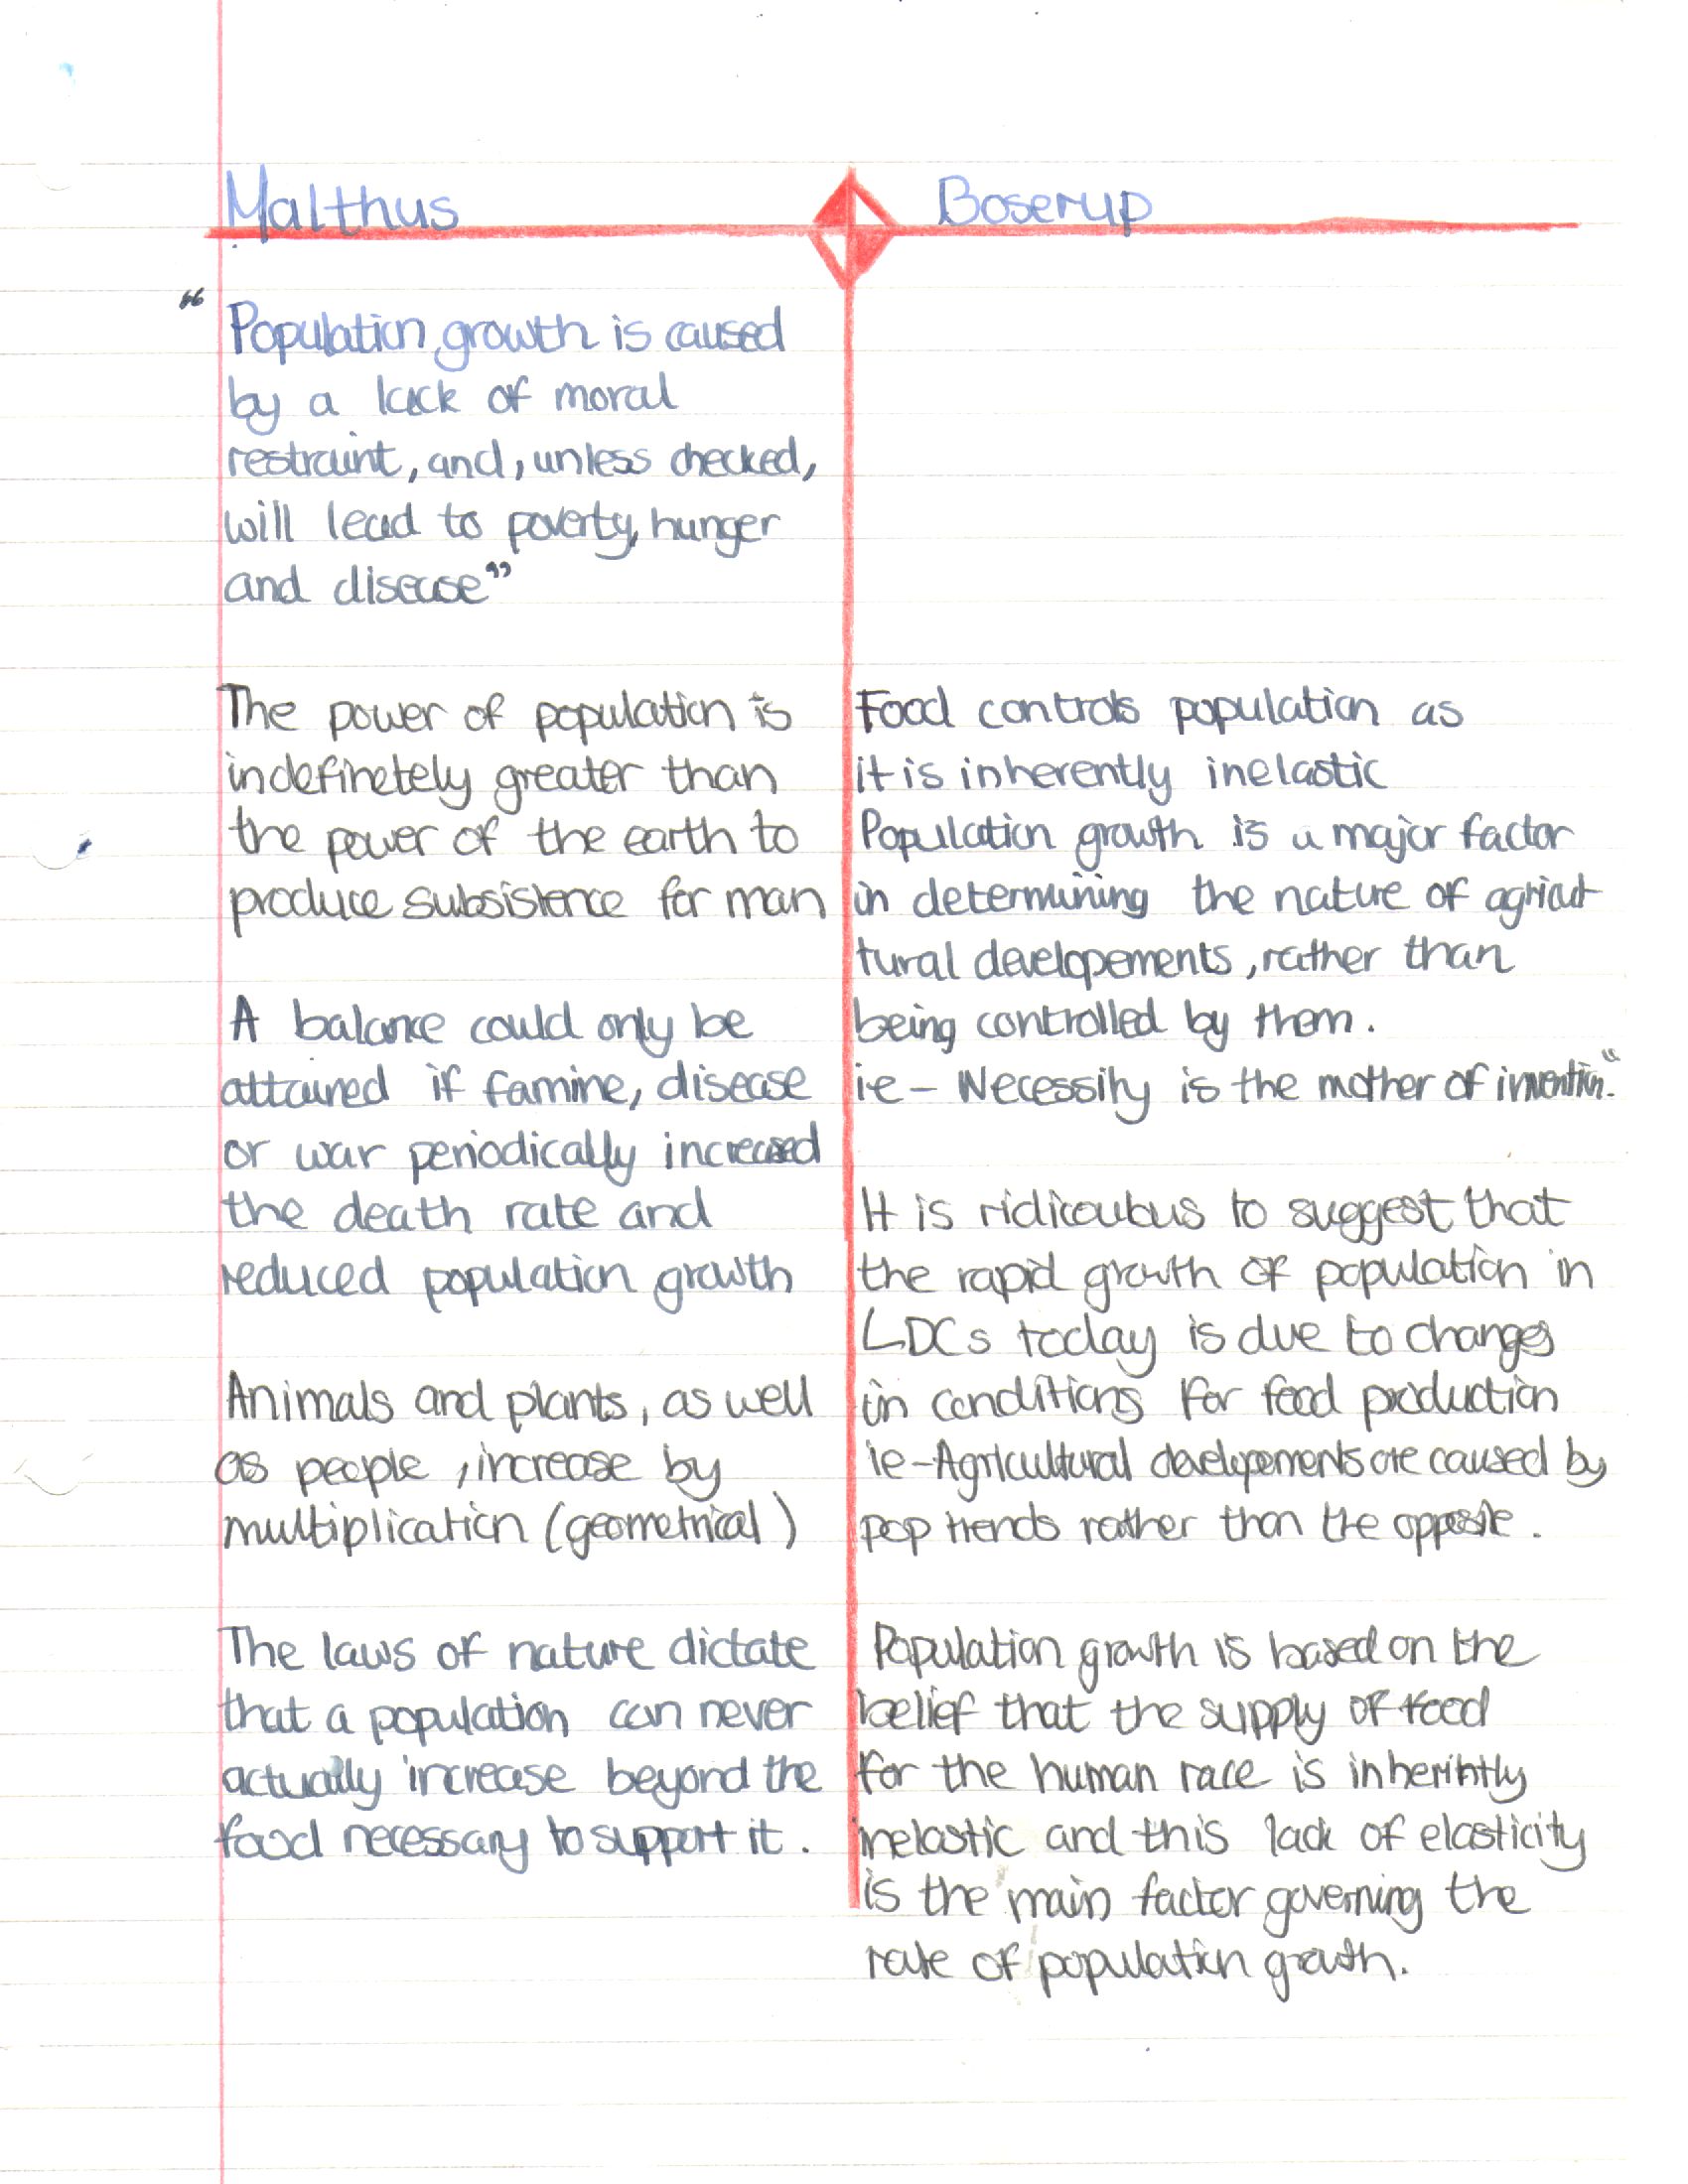 Malthus
"Population growth is caused
by a lack of moral
restraint, and, unless checked,
will lead to poverty, hunger
and disease"
The power of population is
indefinetely greater than
the power of the earth to
produce subsistence for man
A balance could only be
attained if famine, disease
or war periodically increased
the death rate and
reduced population growth
Animals and plants, as well
as people, increase by
multiplication (geometrical)
The laws of nature dictate
that a population can never
actually increase beyond the
food necessary to support it.
Boserup
Food controls population as
it is inherently inelastic
Population growth is a major factor
in determining the nature of agricul
tural developements, rather than
being controlled by them.
ie - Necessity is the mother of invention."
It is ridiculous to suggest that
the rapid growth of population in
LDCs today is due to changes
in conditions for food production
ie-Agricultural developements are caused by
pop trends rather than the opposite.
Population growth is based on the
belief that the supply of food
for the human race is inherintly
inelastic and this lack of elasticity
is the main factor governing the
rate of population growth.